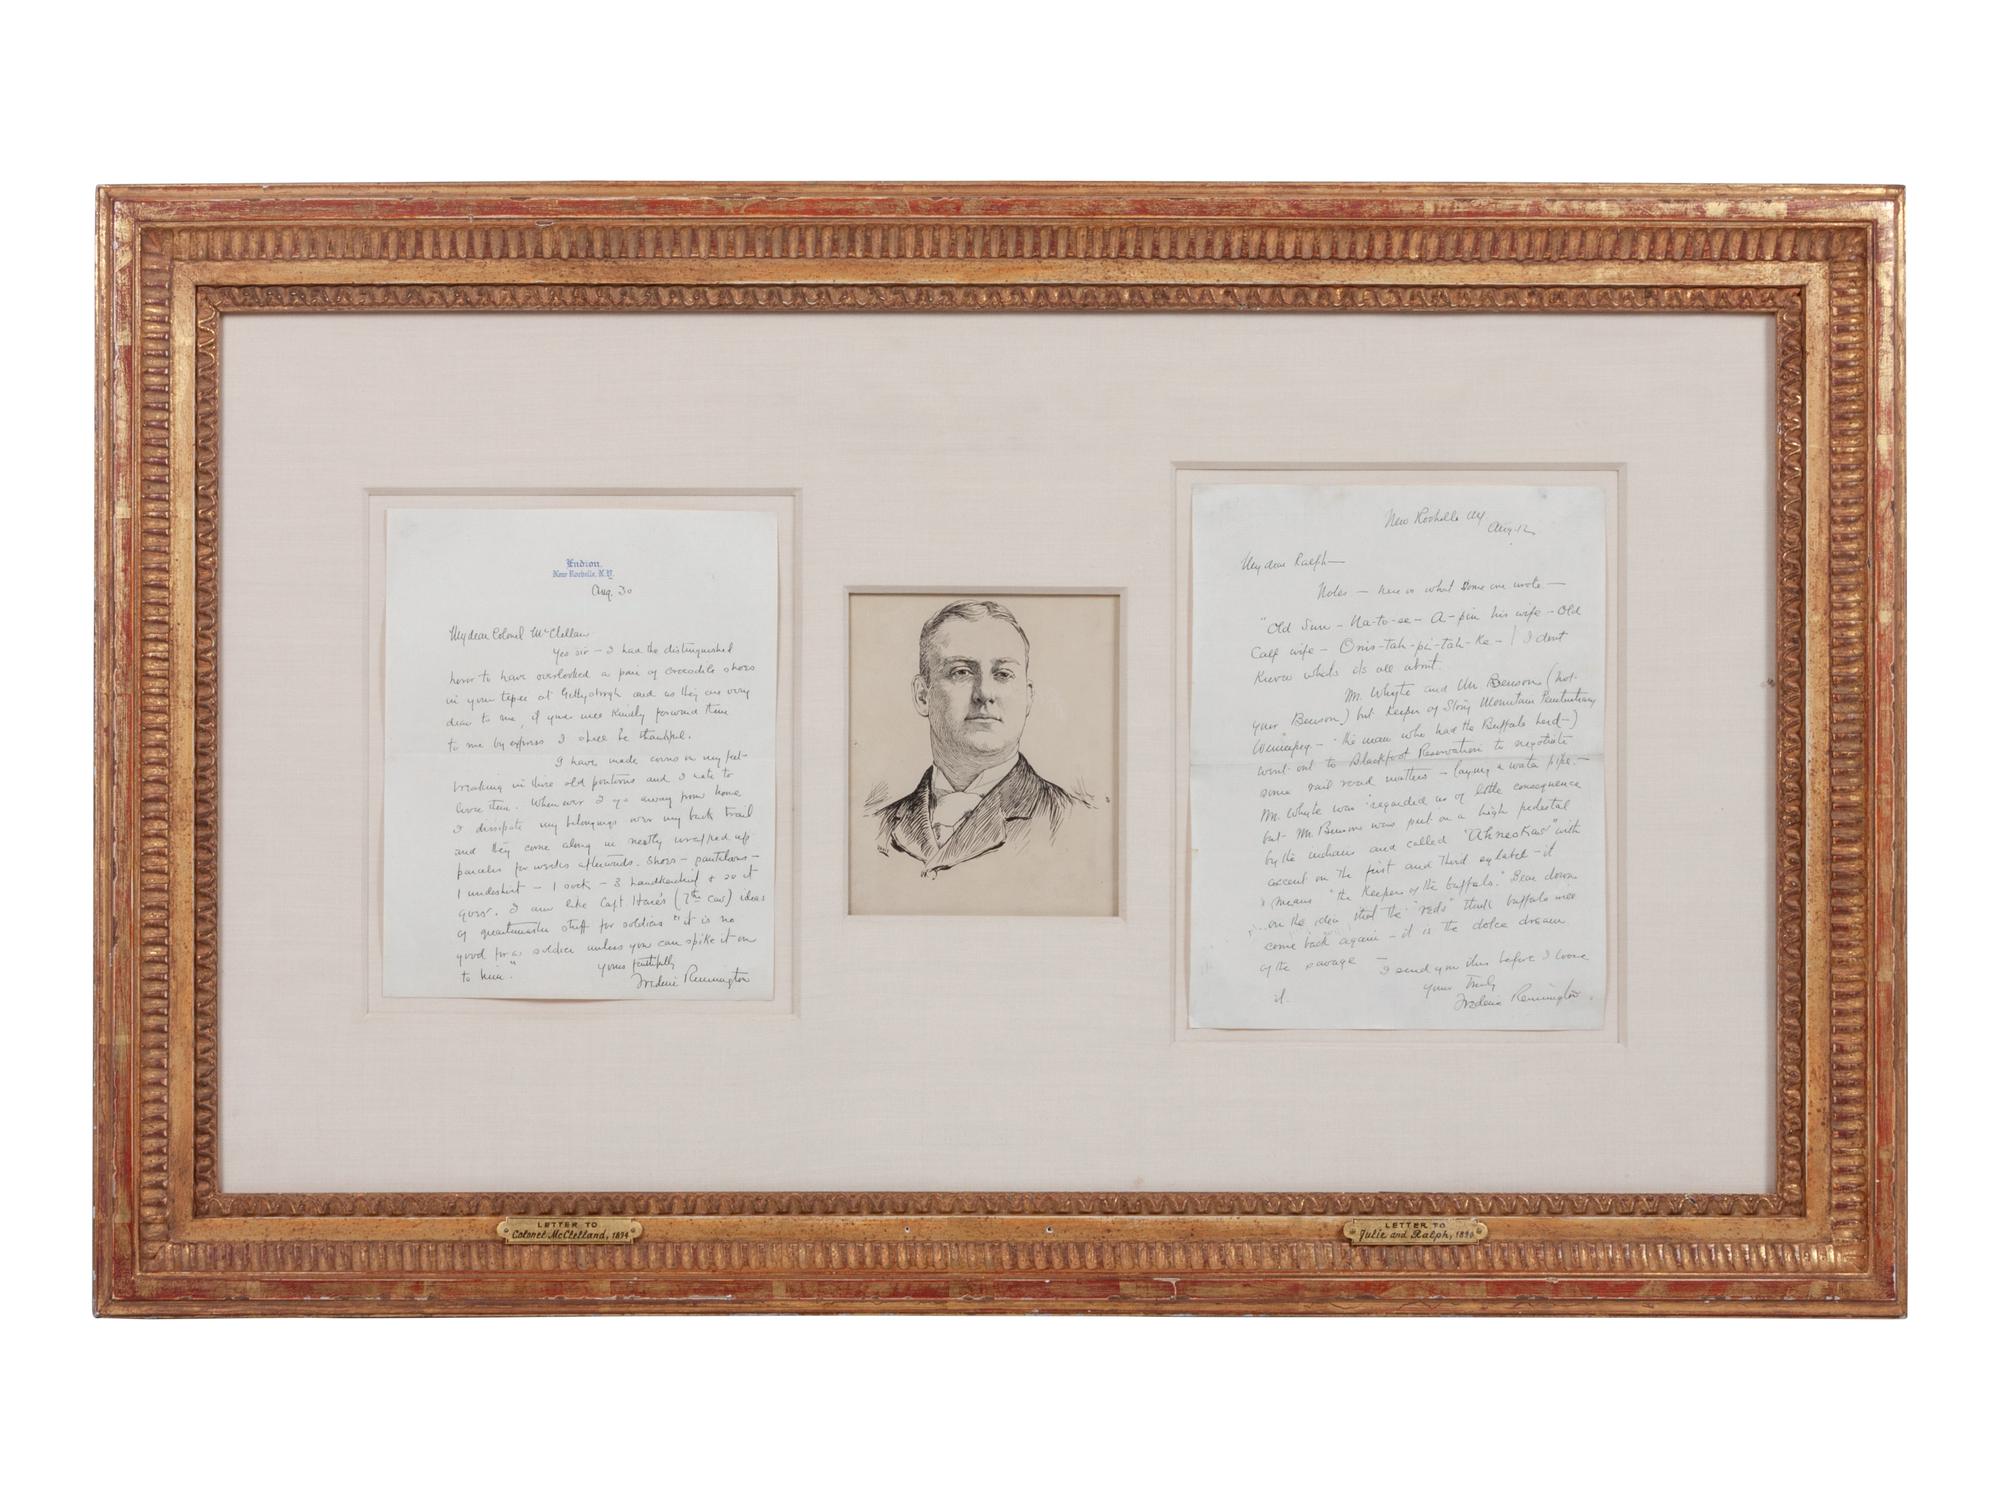 Endion,
New Rochelle, N.Y.
Aug. 30
My dear Colonel McClellan
Yes sir – I had the distinguished
honor to have overlooked a pair of crocodile shoes
in your tepee at Gettysburgh and as they are very
dear to me, if youd mee kindly forward them
to me by express I shall be thankful.
I have made corns on my feet
breaking in those old and I hate to
loose them. Whenever I go away from home
I dissipate my belongings over my back trail
and they come along in neatly wrapped up
parcels for weeks afterwards. Shoes – pantaloons –
1 undershirt – 1 sock – 3 handkerchief & so it
goes. I am like Capt Hare's (7th Cav) ideas
of quartermaster stuff for soldiers "it is no
good for a soldier unless you can spike it on
to him."
Yours faithfully
Frederic Remington
W. J.
New Rochelle NY
Aug. 12
My dear Ralph –
Notes – here is what some one wrote –
"Old Sun – Na-to-se – A-pin his wife – Old
Calf wife – Onis-tah-pi-tah-Ke – / I dont
Know whats it's all about.
Mr. Whyte and Mr. Benson (not
your Benson) but Keeper of Stony Mountain Penitentiary
Winnipeg – "the man who had the Buffalo herd –)
went out to Blackfoot Reservation to negotiate
some rail road matters – laying a water pipe. –
Mr. Whyte was regarded as of little consequence
but Mr. Benson was put on a high pedestal
by the indians and called "Ahneskaw" with
accent on the first and third sylabel – it
means "the Keeper of the buffalo." Bear down
on the idea that the "reds" think buffalo will
come back again – it is the dolce dream
of the savage – I send you this before I loose
it.
Yours Truly
Frederic Remington.
LETTER TO
Colonel McClelland, 1894
LETTER TO
Julie and Ralph, 1890